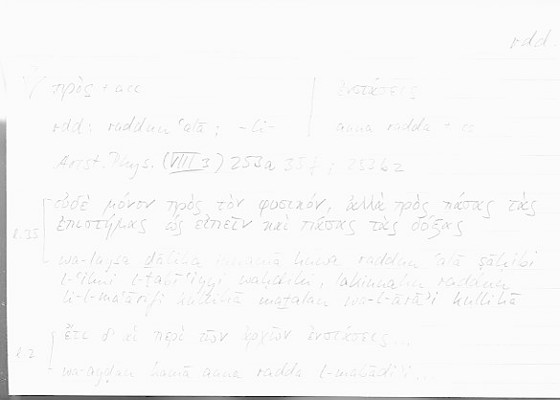 rdd.
πρὸς + acc | ἐνστάσεις
rdd: raddun ʿalā ; -li- | anna radda +
Arist. Phys. (VIII 3) 253a 35 f ; 253b2
l. 25 οὐδὲ μόνον πρὸς τὸν φυσικόν, ἀλλὰ πρὸς πάσας τὰς
ἐπιστήμας ὡς εἰπεῖν καὶ πάσας τὰς δόξας
wa-laysa ḏālika innamā huwa raddun ʿalā ṣāḥibi
l-ʿilmi l-ṭabīʿiyyi waḥdihi, lākinnahu raddun
li-l-maʿārifi kullihā maṯalan wa-l-ārāʾi kullihā
l. 2 ἔτι δ' αἱ περὶ τῶν ἀρχῶν ἐνστάσεις...
wa-ayḍan kamā anna radda l-mabādiʾi...